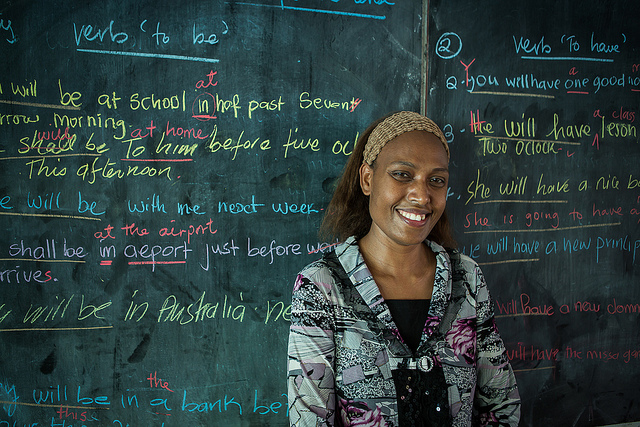 verb 'to be'
will be at school at in haf past Seventy
rrow morning.
shall be at home To him before five oc
This afternoon.
e will be with me next week.
at the airport
shall be in aeport just before wen
rrives.
will be in Australia ne
the
y will be in a bank be
this
② Verb 'To have'
Q. You will have a one good
3. He will have a class leson,
Two oclock.
She will have a nice b
She is going to have a
e will have a new princip
will have a new dom
will have the misso ga